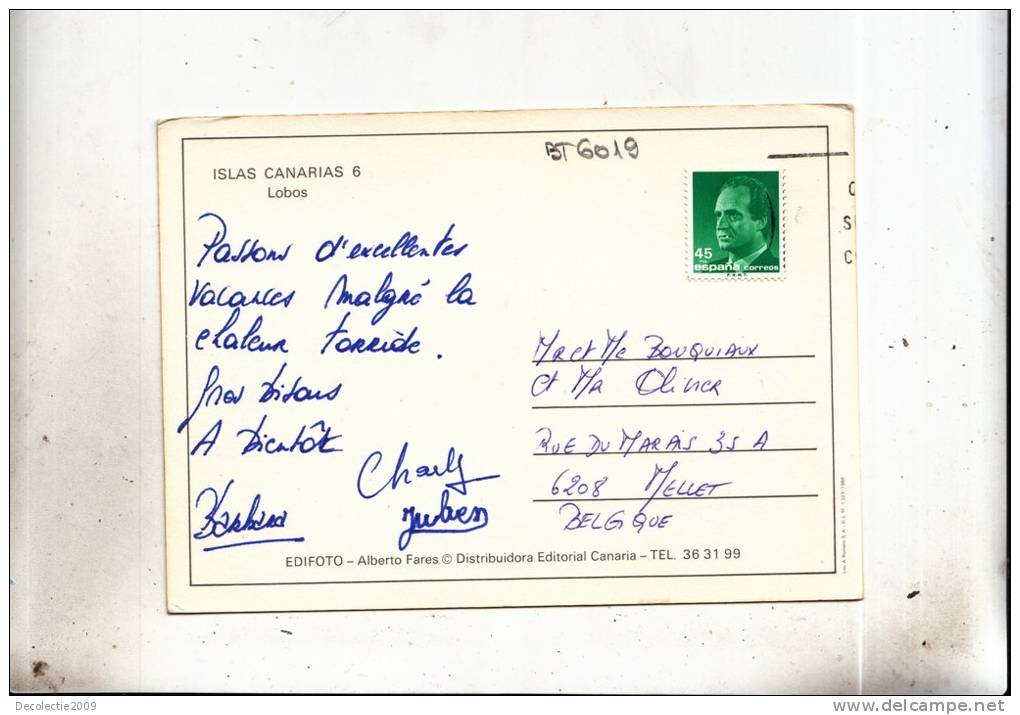 BT 6019
ISLAS CANARIAS 6
Lobos
45
españa correos
Passons d'excellentes
vacances malgré la
chaleur torride.
Gros bisous
A Bientôt
Charly
Barbara
Mr et Me BOUQUIAUX
et Mr Olivier
RUE DU MARAIS 35 A
6208 MELLET
BELGIQUE
EDIFOTO – Alberto Fares © Distribuidora Editorial Canaria – TEL. 36 31 99
Decolectie2009
www.delcampe.net